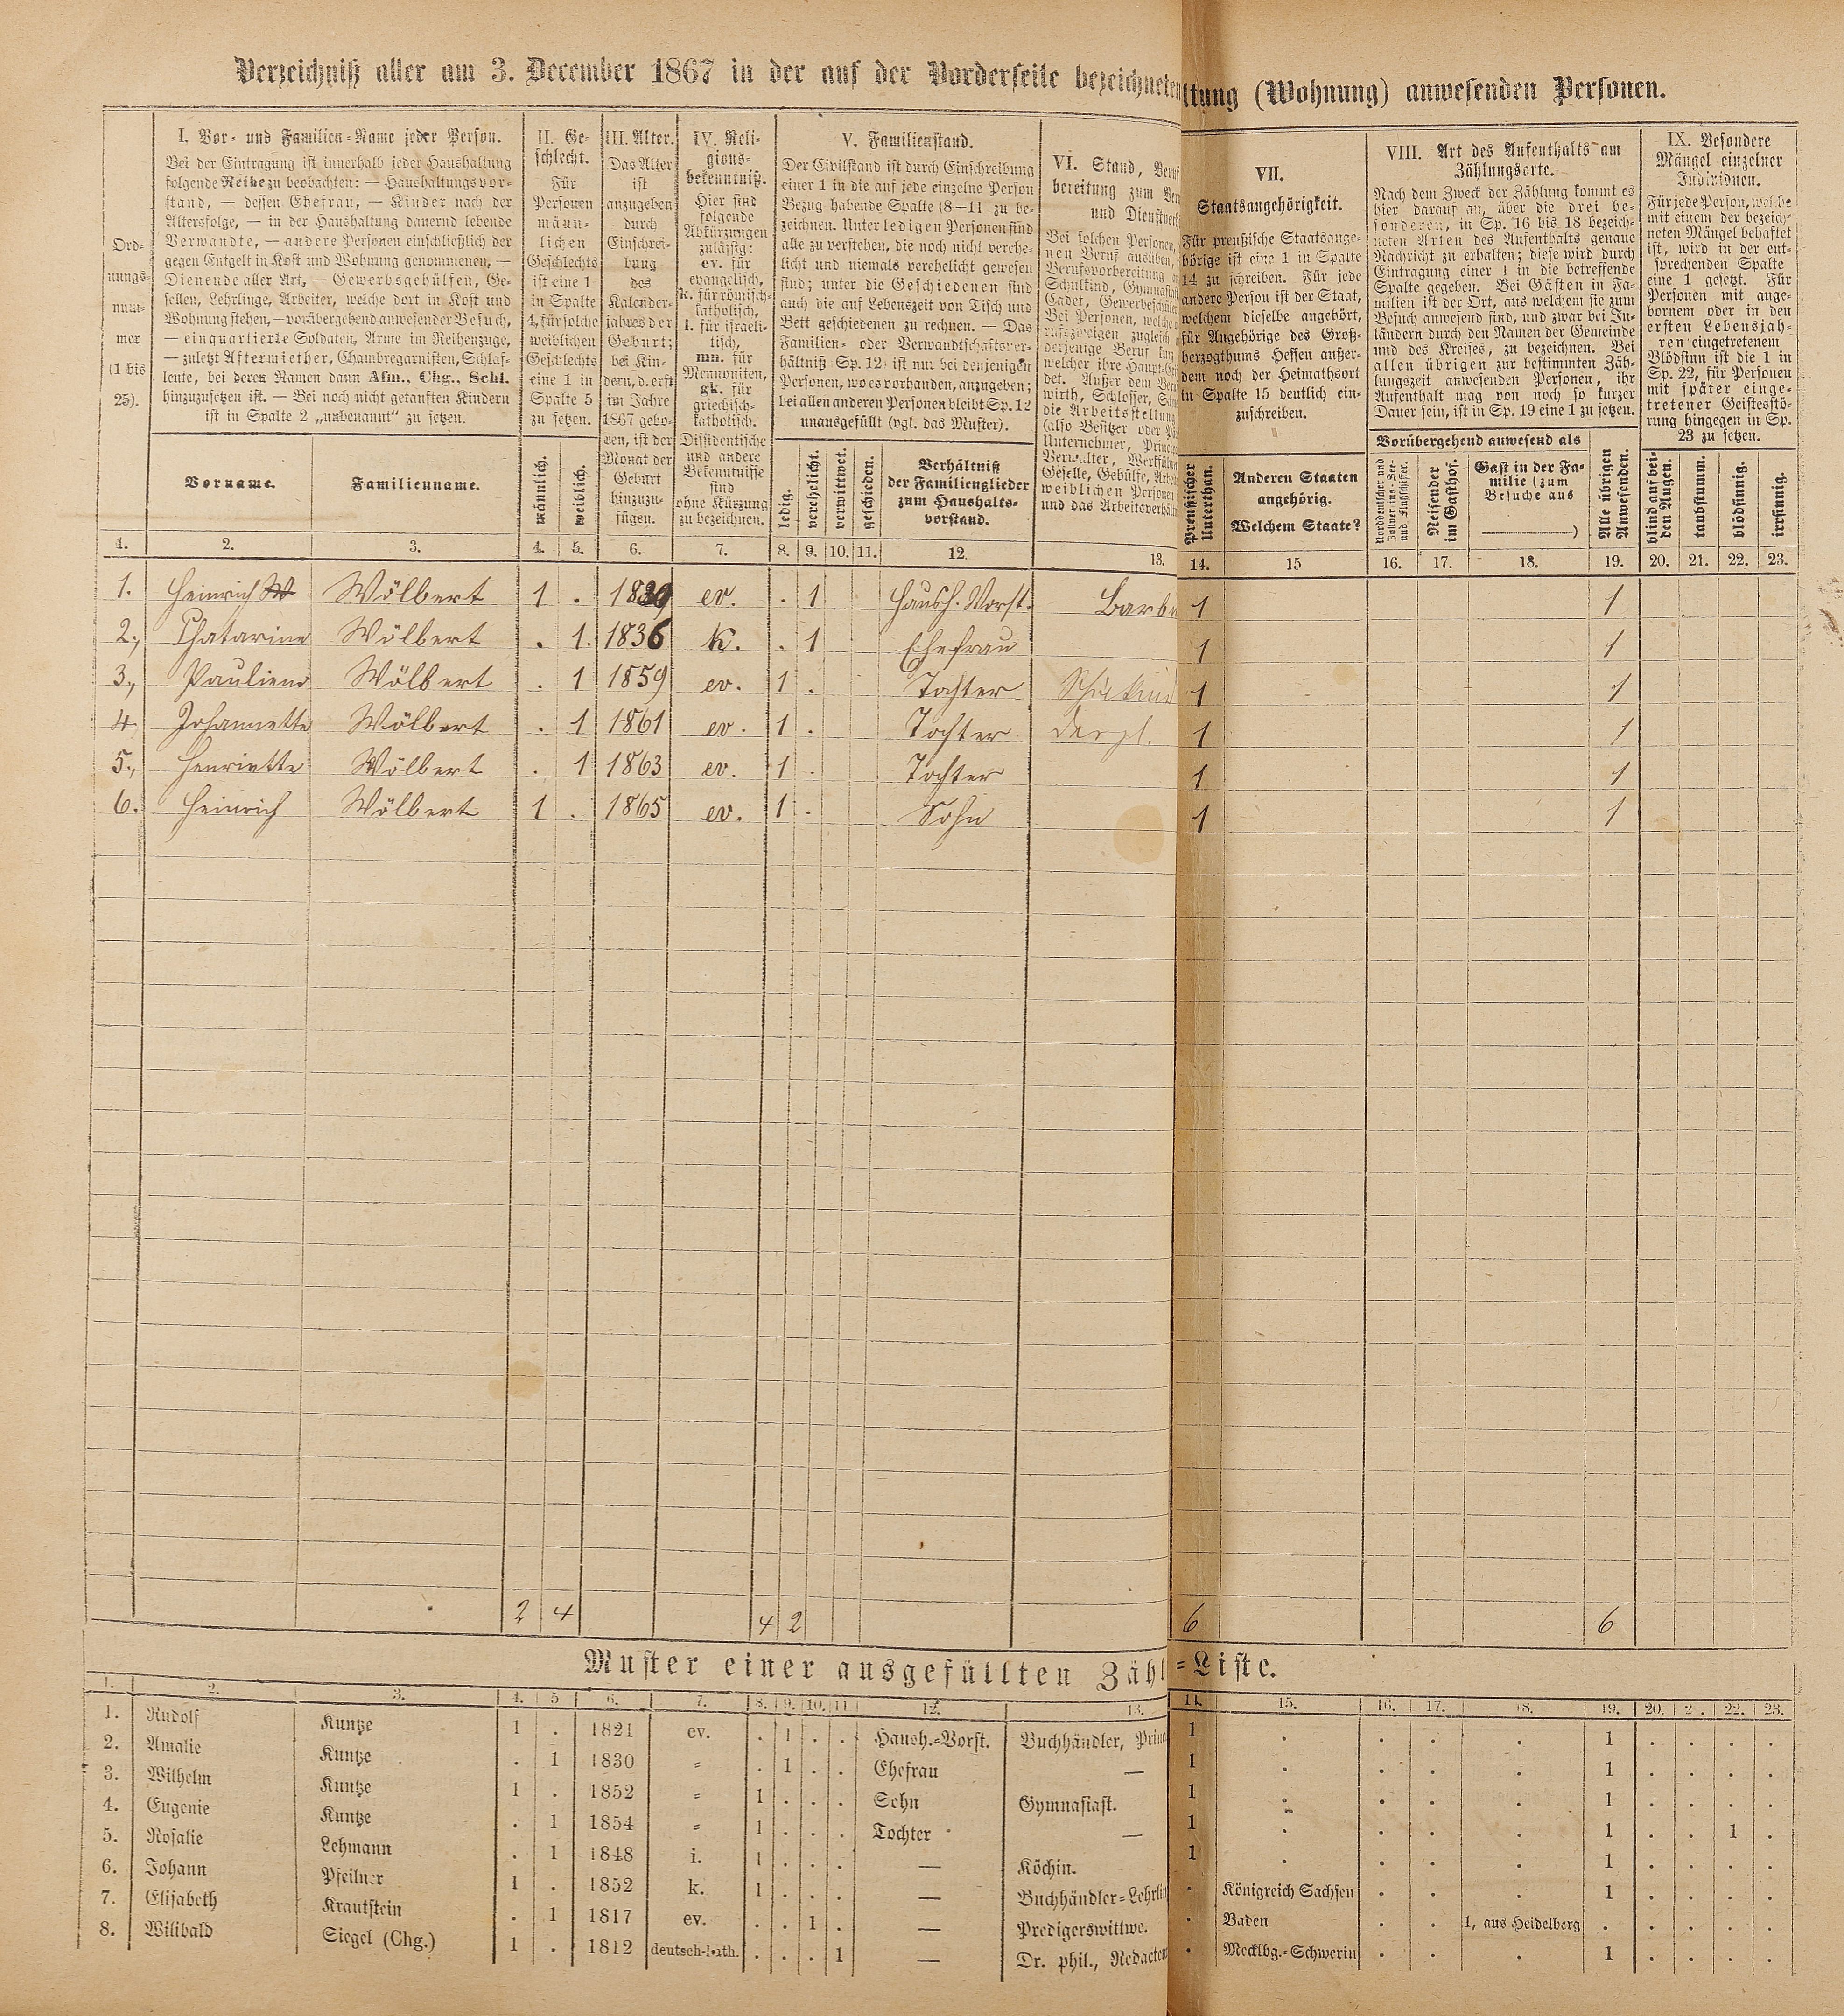 Verzeichniß aller am 3. December 1867 in der auf der Vorderseite bezeichneten
ltung (Wohnung) anwesenden Personen.
Ord-
nungs-
num-
mer
(1 bis
25).
I. Vor- und Familien-Name jeder Person.
Bei der Eintragung ist innerhalb jeder Haushaltung
folgende Reihe zu beobachten: — Haushaltungsvor-
stand, — dessen Ehefrau, — Kinder nach der
Altersfolge, — in der Haushaltung dauernd lebende
Verwandte, — andere Personen einschließlich der
gegen Entgelt in Kost und Wohnung genommenen, —
Dienende aller Art, — Gewerbsgehülfen, Ge-
sellen, Lehrlinge, Arbeiter, welche dort in Kost und
Wohnung stehen, — vorübergehend anwesender Besuch,
— einquartierte Soldaten, Arme im Reihenzuge,
— zuletzt Aftermiether, Chambregarnisten, Schlaf-
leute, bei deren Namen dann Afm., Chg., Schl.
hinzuzusetzen ist. — Bei noch nicht getauften Kindern
ist in Spalte 2 „unbenannt“ zu setzen.
Vorname.
Familienname.
II. Ge-
schlecht.
Für
Personen
männ-
lichen
Geschlechts
ist eine 1
in Spalte
4, für solche
weiblichen
Geschlechts
eine 1 in
Spalte 5
zu setzen.
männlich.
weiblich.
III. Alter.
Das Alter
ist
anzugeben
durch
Einschrei-
bung
des
Kalender-
jahres der
Geburt;
bei Kin-
dern, d. erst
im Jahre
1867 gebo-
ren, ist der
Monat der
Geburt
hinzuzu-
fügen.
IV. Reli-
gions-
bekenntniß.
Hier sind
folgende
Abkürzungen
zulässig:
ev. für
evangelisch,
k. für römisch-
katholisch,
i. für israeli-
tisch,
mn. für
Mennoniten,
gk. für
griechisch-
katholisch.
Dissidentische
und andere
Bekenntnisse
sind
ohne Kürzung
zu bezeichnen.
V. Familienstand.
Der Civilstand ist durch Einschreibung
einer 1 in die auf jede einzelne Person
Bezug habende Spalte (8—11 zu be-
zeichnen. Unter ledigen Personen sind
alle zu verstehen, die noch nicht verehe-
licht und niemals verehelicht gewesen
sind; unter die Geschiedenen sind
auch die auf Lebenszeit von Tisch und
Bett geschiedenen zu rechnen. — Das
Familien- oder Verwandtschaftsver-
hältniß (Sp. 12) ist nur bei denjenigen
Personen, wo es vorhanden, anzugeben;
bei allen anderen Personen bleibt Sp. 12
unausgefüllt (vgl. das Muster).
ledig.
verehelicht.
verwittwet.
geschieden.
Verhältniß
der Familienglieder
zum Haushalts-
vorstand.
VI. Stand, Beruf
bereitung zum
und Dienstver
Bei solchen Personen,
nen Beruf ausüben,
Berufsvorbereitung
Schulkind, Gymnasiast
Cadet, Gewerbeschüler
Bei Personen, welche
rufszweigen zugleich
derjenige Beruf
welcher ihre Haupt-
det. Außer dem
wirth, Schlosser,
die Arbeitsstellung
(also Besitzer oder
Unternehmer,
Verwalter,
Geselle, Gehülfe,
weiblichen Personen
und das Arbeitsverhält
VII.
Staatsangehörigkeit.
Für preußische Staatsange-
hörige ist eine 1 in Spalte
14 zu schreiben. Für jede
andere Person ist der Staat,
welchem dieselbe angehört,
für Angehörige des Groß-
herzogthums Hessen außer-
dem noch der Heimathsort
in Spalte 15 deutlich ein-
zuschreiben.
Preußischer
Unterthan.
Anderen Staaten
angehörig.
Welchem Staate?
VIII. Art des Aufenthalts am
Zählungsorte.
Nach dem Zweck der Zählung kommt es
hier darauf an, über die drei be-
sonderen, in Sp. 16 bis 18 bezeich-
neten Arten des Aufenthalts genaue
Nachricht zu erhalten; diese wird durch
Eintragung einer 1 in die betreffende
Spalte gegeben. Bei Gästen in Fa-
milien ist der Ort, aus welchem sie zum
Besuch anwesend sind, und zwar bei In-
ländern durch den Namen der Gemeinde
und des Kreises, zu bezeichnen. Bei
allen übrigen zur bestimmten Zäh-
lungszeit anwesenden Personen, ihr
Aufenthalt mag von noch so kurzer
Dauer sein, ist in Sp. 19 eine 1 zu setzen.
Vorübergehend anwesend als
Norddeutscher und
Zollvereins-See-
und Flußschiffer.
Reisender
im Gasthof.
Gast in der Fa-
milie (zum
Besuche aus
)
Alle übrigen
Anwesenden.
IX. Besondere
Mängel einzelner
Individuen.
Für jede Person, welche
mit einem der bezeich-
neten Mängel behaftet
ist, wird in der ent-
sprechenden Spalte
eine 1 gesetzt. Für
Personen mit ange-
bornem oder in den
ersten Lebensjah-
ren eingetretenem
Blödsinn ist die 1 in
Sp. 22, für Personen
mit später einge-
tretener Geistesstö-
rung hingegen in Sp.
23 zu setzen.
blind auf bei-
den Augen.
taubstumm.
blödsinnig.
irrsinnig.
1. 2. 3. 4. 5. 6. 7. 8. 9. 10. 11. 12. 13. 14. 15 16. 17. 18. 19. 20. 21. 22. 23.
1. Heinrich W Wölbert 1 . 1839 ev. . 1 Haush. Vorst. Barb 1 1
2., Chatarine Wölbert . 1. 1836 k. . 1 Ehefrau 1 1
3., Pauliene Wölbert . 1 1859 ev. 1 . Tochter 1 1
4 Johannette Wölbert . 1 1861 ev. 1 . Tochter desgl. 1 1
5., Henriette Wölbert . 1 1863 ev. 1 . Tochter 1 1
6. Heinrich Wölbert 1 . 1865 ev. 1 . Sohn 1 1
2 4 4 2 6 6
Muster einer ausgefüllten Zähl=Liste.
1. 2. 3. 4. 5 6. 7. 8. 9. 10. 11 12. 13. 14. 15. 16. 17. 18. 19. 20. 2. 22. 23.
1. Rudolf Kuntze 1 . 1821 ev. . 1 . . Haush.=Vorst. Buchhändler, Princ 1 . . . . 1 . . . .
2. Amalie Kuntze . 1 1830 = . 1 . . Ehefrau — 1 . . . . 1 . . . .
3. Wilhelm Kuntze 1 . 1852 = 1 . . . Sohn Gymnasiast. 1 . . . . 1 . . . .
4. Eugenie Kuntze . 1 1854 = 1 . . . Tochter — 1 . . . . 1 . . 1 .
5. Rosalie Lehmann . 1 1848 i. 1 . . . — Köchin. 1 . . . . 1 . . . .
6. Johann Pfeilner 1 . 1852 k. 1 . . . — Buchhändler=Lehrlin . Königreich Sachsen . . . 1 . . . .
7. Elisabeth Krautstein . 1 1817 ev. . . 1 . — Predigerswittwe. . Baden . . 1, aus Heidelberg . . . . .
8. Wilibald Siegel (Chg.) 1 . 1812 deutsch-kath. . . . 1 — Dr. phil., Redacteu . Mecklbg.=Schwerin . . . 1 . . . .